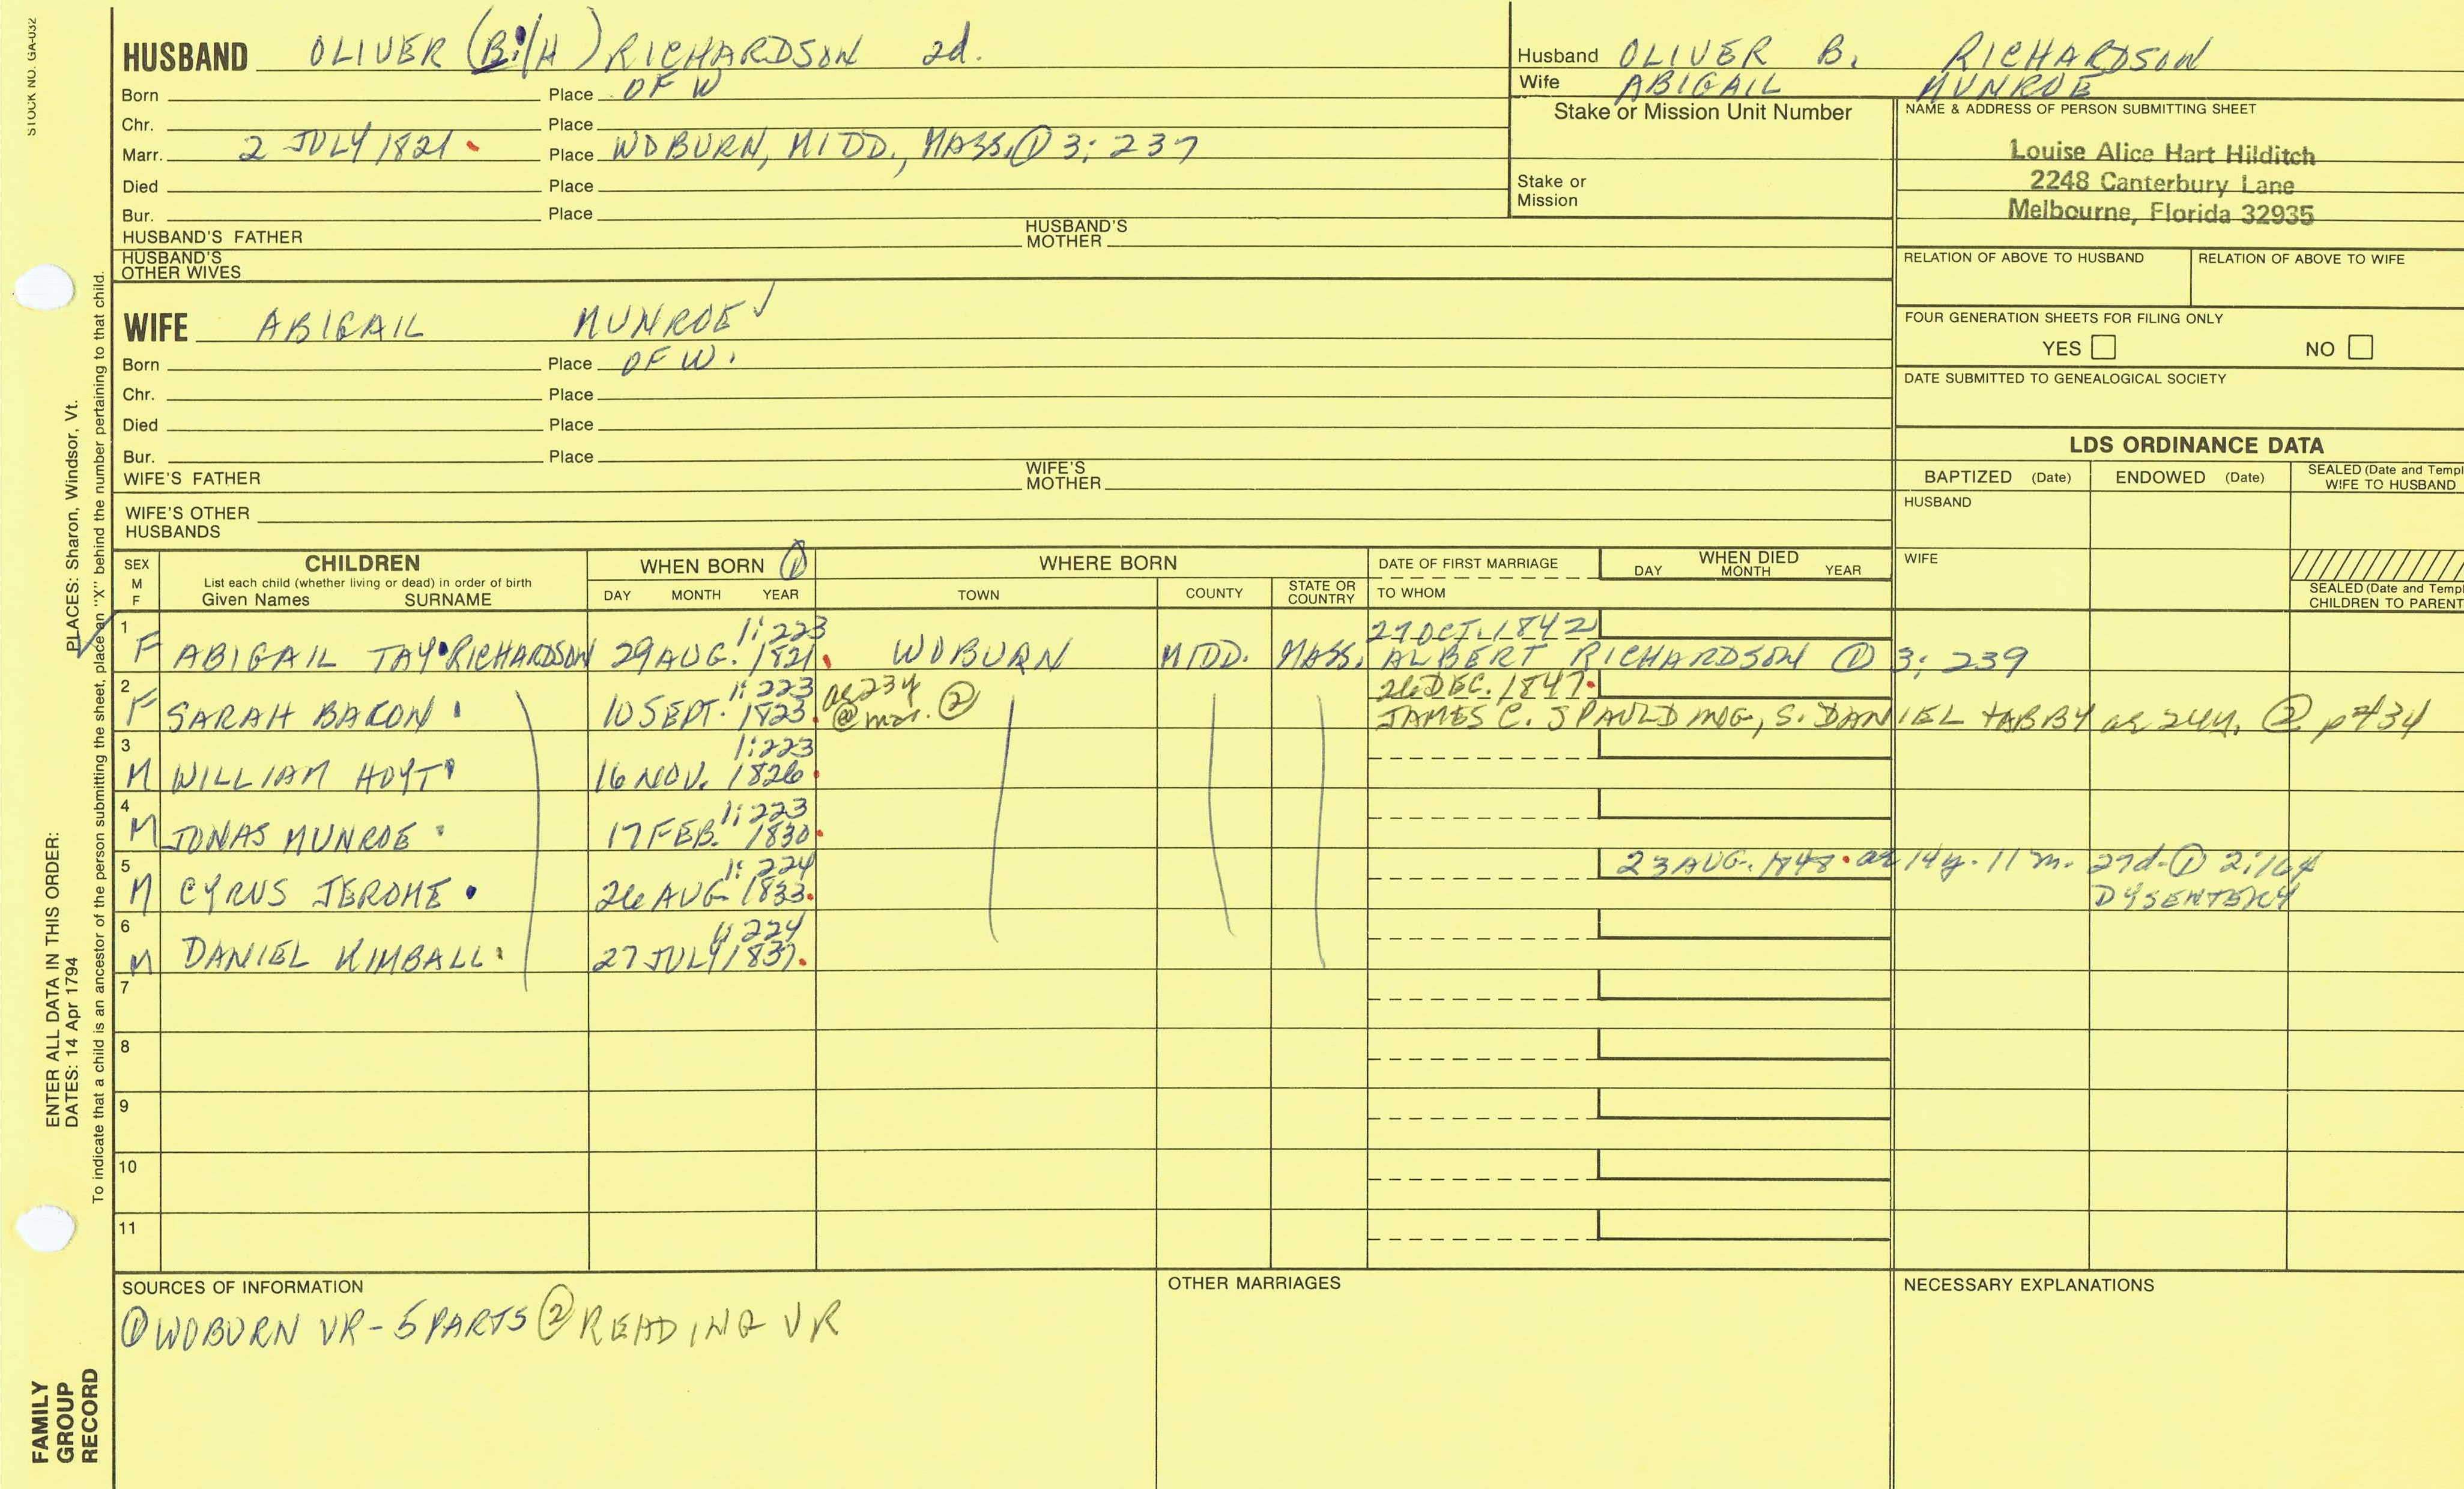 STOCK NO. GA-032
HUSBAND OLIVER (B:/H) RICHARDSON 2d.
Born Place OF W
Chr. Place
Marr. 2 JULY 1821 Place WOBURN, MIDD., MASS. ① 3: 237
Died Place
Bur. Place
HUSBAND'S FATHER HUSBAND'S MOTHER
HUSBAND'S OTHER WIVES
Husband OLIVER B. RICHARDSON
Wife ABIGAIL MUNROE
Stake or Mission Unit Number
Stake or Mission
NAME & ADDRESS OF PERSON SUBMITTING SHEET
Louise Alice Hart Hilditch
2248 Canterbury Lane
Melbourne, Florida 32935
RELATION OF ABOVE TO HUSBAND RELATION OF ABOVE TO WIFE
FOUR GENERATION SHEETS FOR FILING ONLY
YES NO
DATE SUBMITTED TO GENEALOGICAL SOCIETY
WIFE ABIGAIL MUNROE ✓
Born Place OF W.
Chr. Place
Died Place
Bur. Place
WIFE'S FATHER WIFE'S MOTHER
WIFE'S OTHER HUSBANDS
LDS ORDINANCE DATA
BAPTIZED (Date) ENDOWED (Date) SEALED (Date and Templ
WIFE TO HUSBAND
HUSBAND
WIFE
SEALED (Date and Templ
CHILDREN TO PARENT
SEX M F
CHILDREN
List each child (whether living or dead) in order of birth
Given Names SURNAME
WHEN BORN ①
DAY MONTH YEAR
WHERE BORN
TOWN COUNTY STATE OR COUNTRY
DATE OF FIRST MARRIAGE
TO WHOM
WHEN DIED
DAY MONTH YEAR
1 1:223 27 OCT. 1842
✓ F ABIGAIL TAY RICHARDSON 29 AUG. 1821 WOBURN MIDD. MASS. ALBERT RICHARDSON ① 3: 239
2 1:223 ae 23y @ mar. ② 26 DEC. 1847
F SARAH BACON 10 SEPT. 1823 JAMES C. SPAULDING, S. DANIEL + ABBY ae 24y. ② p 434
3 1:223
M WILLIAM HOYT 16 NOV. 1826
4 1:223
M JONAS MUNROE 17 FEB. 1830
5 1:224 23 AUG. 1848 ae 14y. 11m. 27d. ① 2:164
M CYRUS JEROME 26 AUG 1833 DYSENTERY
6 1:224
M DANIEL KIMBALL 27 JULY 1837
7
8
9
10
11
SOURCES OF INFORMATION
① WOBURN VR - 5 PARTS ② READING VR
OTHER MARRIAGES
NECESSARY EXPLANATIONS
ENTER ALL DATA IN THIS ORDER:
DATES: 14 Apr 1794 PLACES: Sharon, Windsor, Vt.
To indicate that a child is an ancestor of the person submitting the sheet, place an "X" behind the number pertaining to that child.
FAMILY
GROUP
RECORD